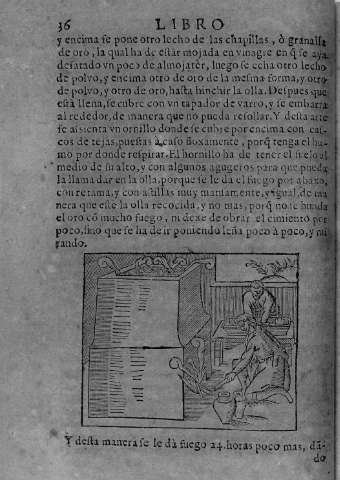 36 LIBRO
y encima se pone otro lecho de las chapillas, ò granalla
de oro, la qual ha de estar mojada en vinagre en q̃ se aya
desatado vn poco de almojater, luego se echa otro lecho
de polvo, y encima otro de oro de la mesma forma, y otro
de polvo, y otro de oro, hasta hinchir la olla. Despues que
está llena, se cubre con vn tapador de varro, y se embarra
al rededor, de manera que no pueda resollar. Y desta arte
se assienta vn ornillo donde se cubre por encima con cas-
cos de tejas, puestas à caso floxamente, porq̃ tenga el hu-
mo por donde respirar. El hornillo ha de tener el suelo al
medio de su alto, y con algunos agugeros para que pueda
la llama dar en la olla, porque se le dà el fuego por abaxo,
con retama, y con astillas muy mansamente, y igual, de ma
nera que estè la olla recocida, y no mas, porq̃ no se hunda
el oro cõ mucho fuego, ni dexe de obrar el cimiento por
poco, sino que se ha de ir poniendo leña poco à poco, y mi
rando.
Y desta manera se le dà fuego 24. horas poco mas, dã-
do